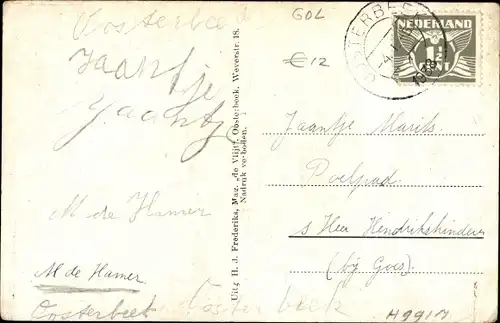 Oosterbeek
GOL
€12
OOSTERBEEK
1938
NEDERLAND
1½
CENT
Jaantje
Jaantje
Jaantje Marits.
Poelpad
s Heer Hendrikskinderen
(bij Goes)
M de Hamer
M de Hamer
Oosterbeek
Oosterbeek
H9917
Uitg H. J. Frederiks, Mag. „de Vlijt”, Oosterbeek, Weverstr. 18.
Nadruk verboden.